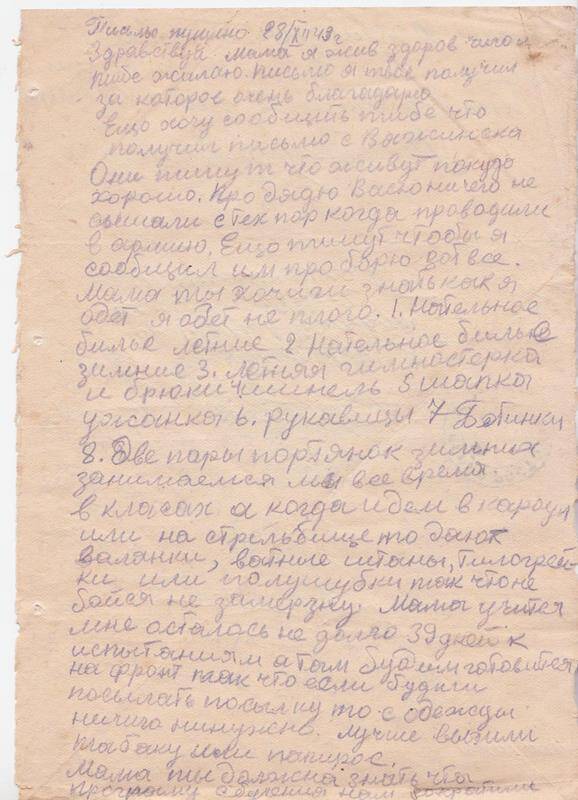 Письмо пущено 23/XII 43 г
Здравствуй мама я жив здоров чиго и
тибе жилаю. Письмо я твое получил
за которое очень благодарю
Ещо хочу сообщить тибе что
получил письмо с
Они пишут что живут покудо
хорошо. Про дядю Васю ничего не
слышали с тех пор когда проводили
в армию. Ещо пишут чтобы я
сообщил им про борю вот все.
Мама ты хочиш знать как я
одет я одет не плохо. 1. Нательное
билье летние 2 Нательное билье
зимние 3. летняя гимностерка
и брюки 4 шинель 5 шапка
ушанка 6. рукавицы 7 Ботинки
8. Две пары портянок зимних
занимаемся мы все время
в класах а когда идем в караул
или на стрельбище то дают
валенки, ватные штаны, тилогрей-
ки или полушубки так что не
бойся не замерзну. Мама учится
мне осталось не долго 39 дней к
испытаниям а там будим готовится
на фронт так что если будиш
посылать посылку то с одежды
ничиго ни нужно. Лучше вышли
табаку или папирос.
Мама ты должна знать что
програму обучения нам сократили